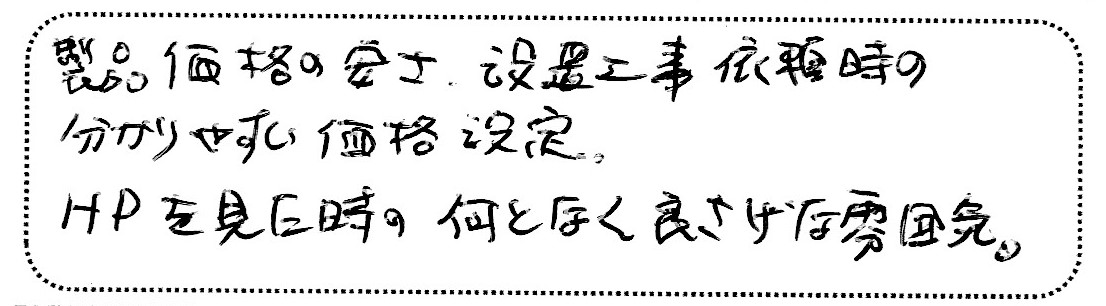 製品価格の安さ、設置工事依頼時の
分かりやすい価格設定。
HPを見た時の何となく良さげな雰囲気。